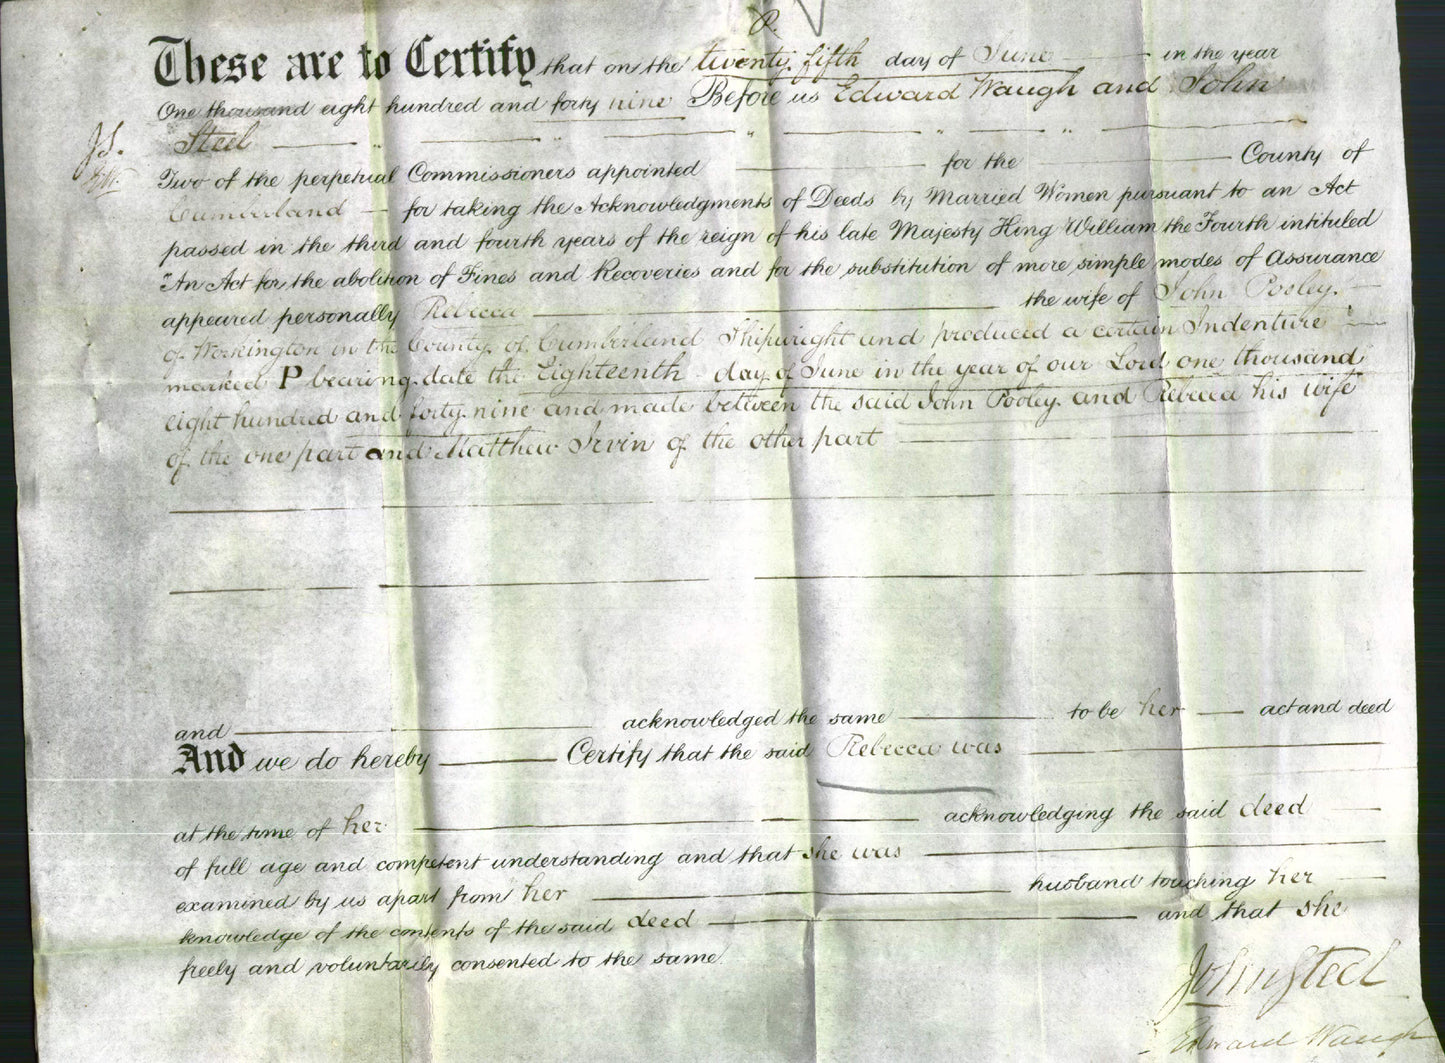 P.
These are to Certify that on the twenty fifth day of June in the year
One thousand eight hundred and forty nine Before us Edward Waugh and John
J.S. Steel
E.W. Two of the perpetual Commissioners appointed for the County of
Cumberland for taking the Acknowledgments of Deeds by Married Women pursuant to an Act
passed in the third and fourth years of the reign of his late Majesty King William the Fourth intituled
"An Act for the abolition of Fines and Recoveries and for the substitution of more simple modes of Assurance
appeared personally Rebecca the wife of John Pooley.
of Workington in the County of Cumberland Shipwright and produced a certain Indenture
marked P bearing date the Eighteenth day of June in the year of our Lord one thousand
eight hundred and forty nine and made between the said John Pooley and Rebecca his wife
of the one part and Matthew Irvin of the other part
and acknowledged the same to be her act and deed
And we do hereby Certify that the said Rebecca was
at the time of her acknowledging the said deed
of full age and competent understanding and that she was
examined by us apart from her husband touching her
knowledge of the contents of the said deed and that she
freely and voluntarily consented to the same.
John Steel
Edward Waugh